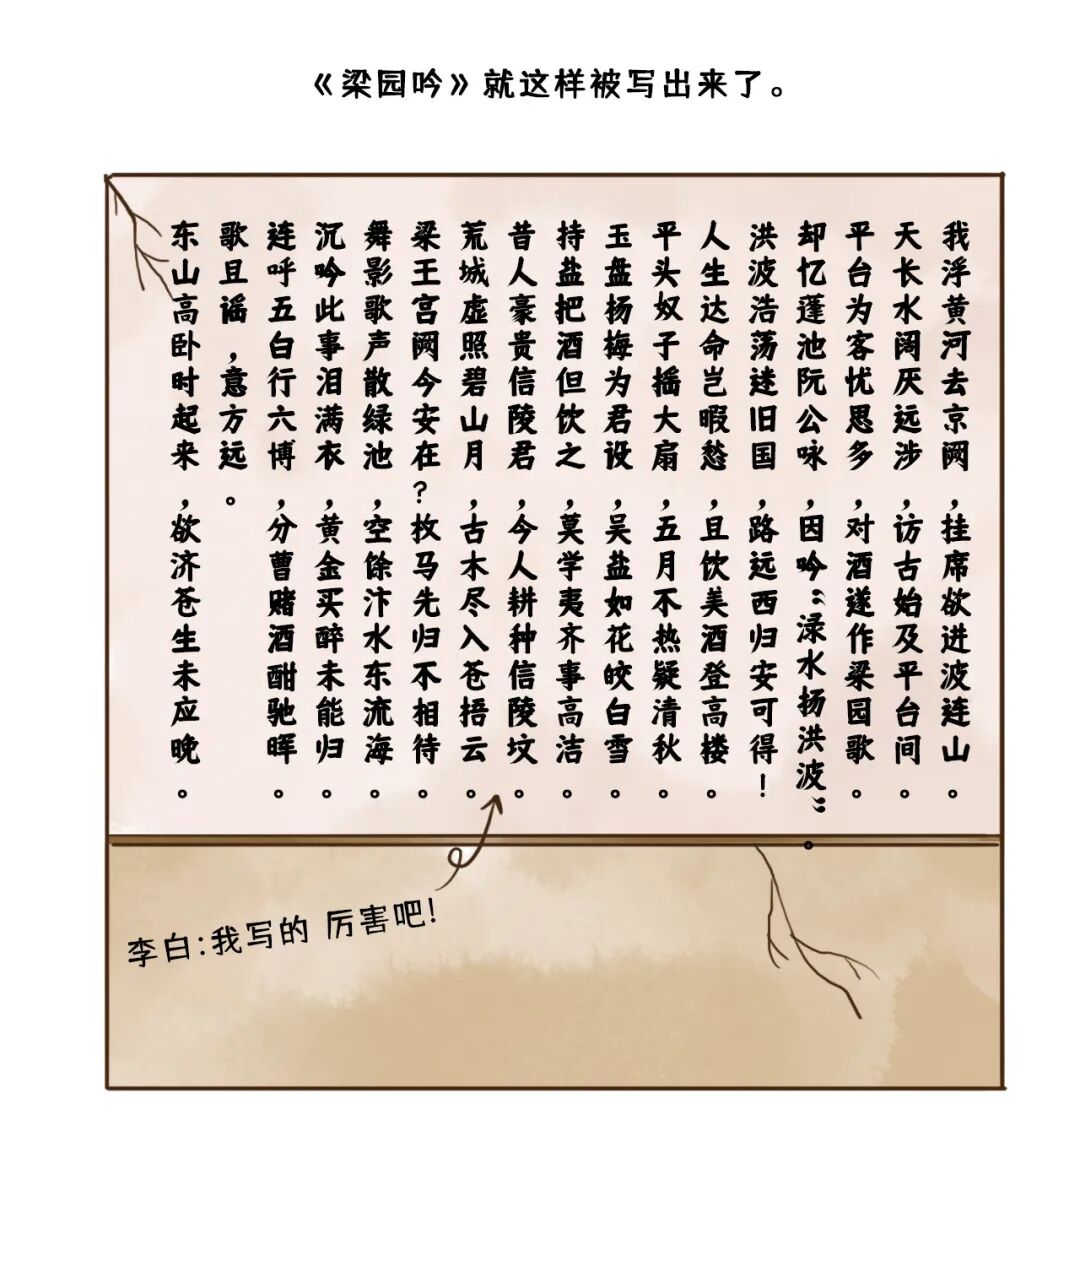 《梁园吟》就这样被写出来了。
我浮黄河去京阙，挂席欲进波连山。
天长水阔厌远涉，访古始及平台间。
平台为客忧思多，对酒遂作梁园歌。
却忆蓬池阮公咏，因吟“渌水扬洪波”。
洪波浩荡迷旧国，路远西归安可得！
人生达命岂暇愁，且饮美酒登高楼。
平头奴子摇大扇，五月不热疑清秋。
玉盘杨梅为君设，吴盐如花皎白雪。
持盐把酒但饮之，莫学夷齐事高洁。
昔人豪贵信陵君，今人耕种信陵坟。
荒城虚照碧山月，古木尽入苍梧云。
梁王宫阙今安在？枚马先归不相待。
舞影歌声散绿池，空馀汴水东流海。
沉吟此事泪满衣，黄金买醉未能归。
连呼五白行六博，分曹赌酒酣驰晖。
歌且谣，意方远。
东山高卧时起来，欲济苍生未应晚。
李白:我写的 厉害吧!